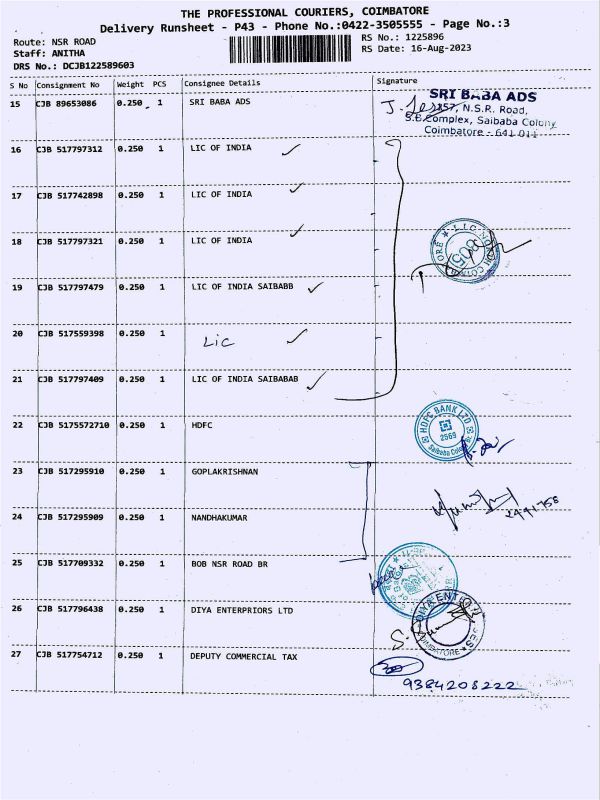 THE PROFESSIONAL COURIERS, COIMBATORE
Delivery Runsheet - P43 - Phone No.:0422-3505555 - Page No.:3
Route: NSR ROAD
Staff: ANITHA
DRS No.: DCJB122589603
RS No.: 1225896
RS Date: 16-Aug-2023
S No Consignment No Weight PCS Consignee Details Signature
15 CJB 89653086 0.250 1 SRI BABA ADS
SRI BABA ADS
357, N.S.R. Road,
S.B.Complex, Saibaba Colony
Coimbatore - 641 011
16 CJB 517797312 0.250 1 LIC OF INDIA
17 CJB 517742898 0.250 1 LIC OF INDIA
18 CJB 517797321 0.250 1 LIC OF INDIA
19 CJB 517797479 0.250 1 LIC OF INDIA SAIBABB
20 CJB 517559398 0.250 1 LIC
21 CJB 517797409 0.250 1 LIC OF INDIA SAIBABAB
22 CJB 5175572710 0.250 1 HDFC
HDFC BANK LTD
2569
Saibaba Colony
23 CJB 517295910 0.250 1 GOPLAKRISHNAN
24 CJB 517295909 0.250 1 NANDHAKUMAR
25 CJB 517709332 0.250 1 BOB NSR ROAD BR
26 CJB 517796438 0.250 1 DIYA ENTERPRIORS LTD
27 CJB 517754712 0.250 1 DEPUTY COMMERCIAL TAX
9384208222